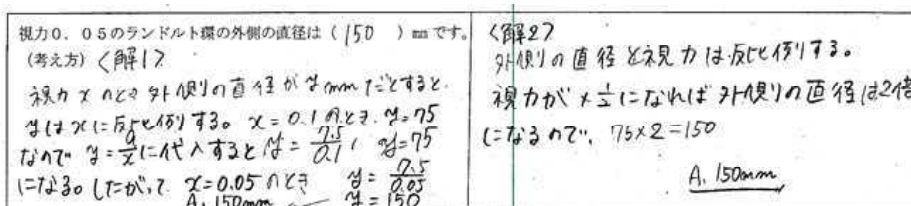 視力0.05のランドルト環の外側の直径は(150)mmです。
(考え方)<解1>
視力xのとき外側の直径がymmだとすると、
yはxに反比例する。x=0.1のとき、y=75
なので y=a/xに代入すると y=7.5/0.1, y=75
になる。したがって x=0.05のとき y=7.5/0.05
A. 150mm y=150
<解2>
外側の直径と視力は反比例する。
視力が×1/2になれば外側の直径は2倍
になるので、75×2=150
A. 150mm